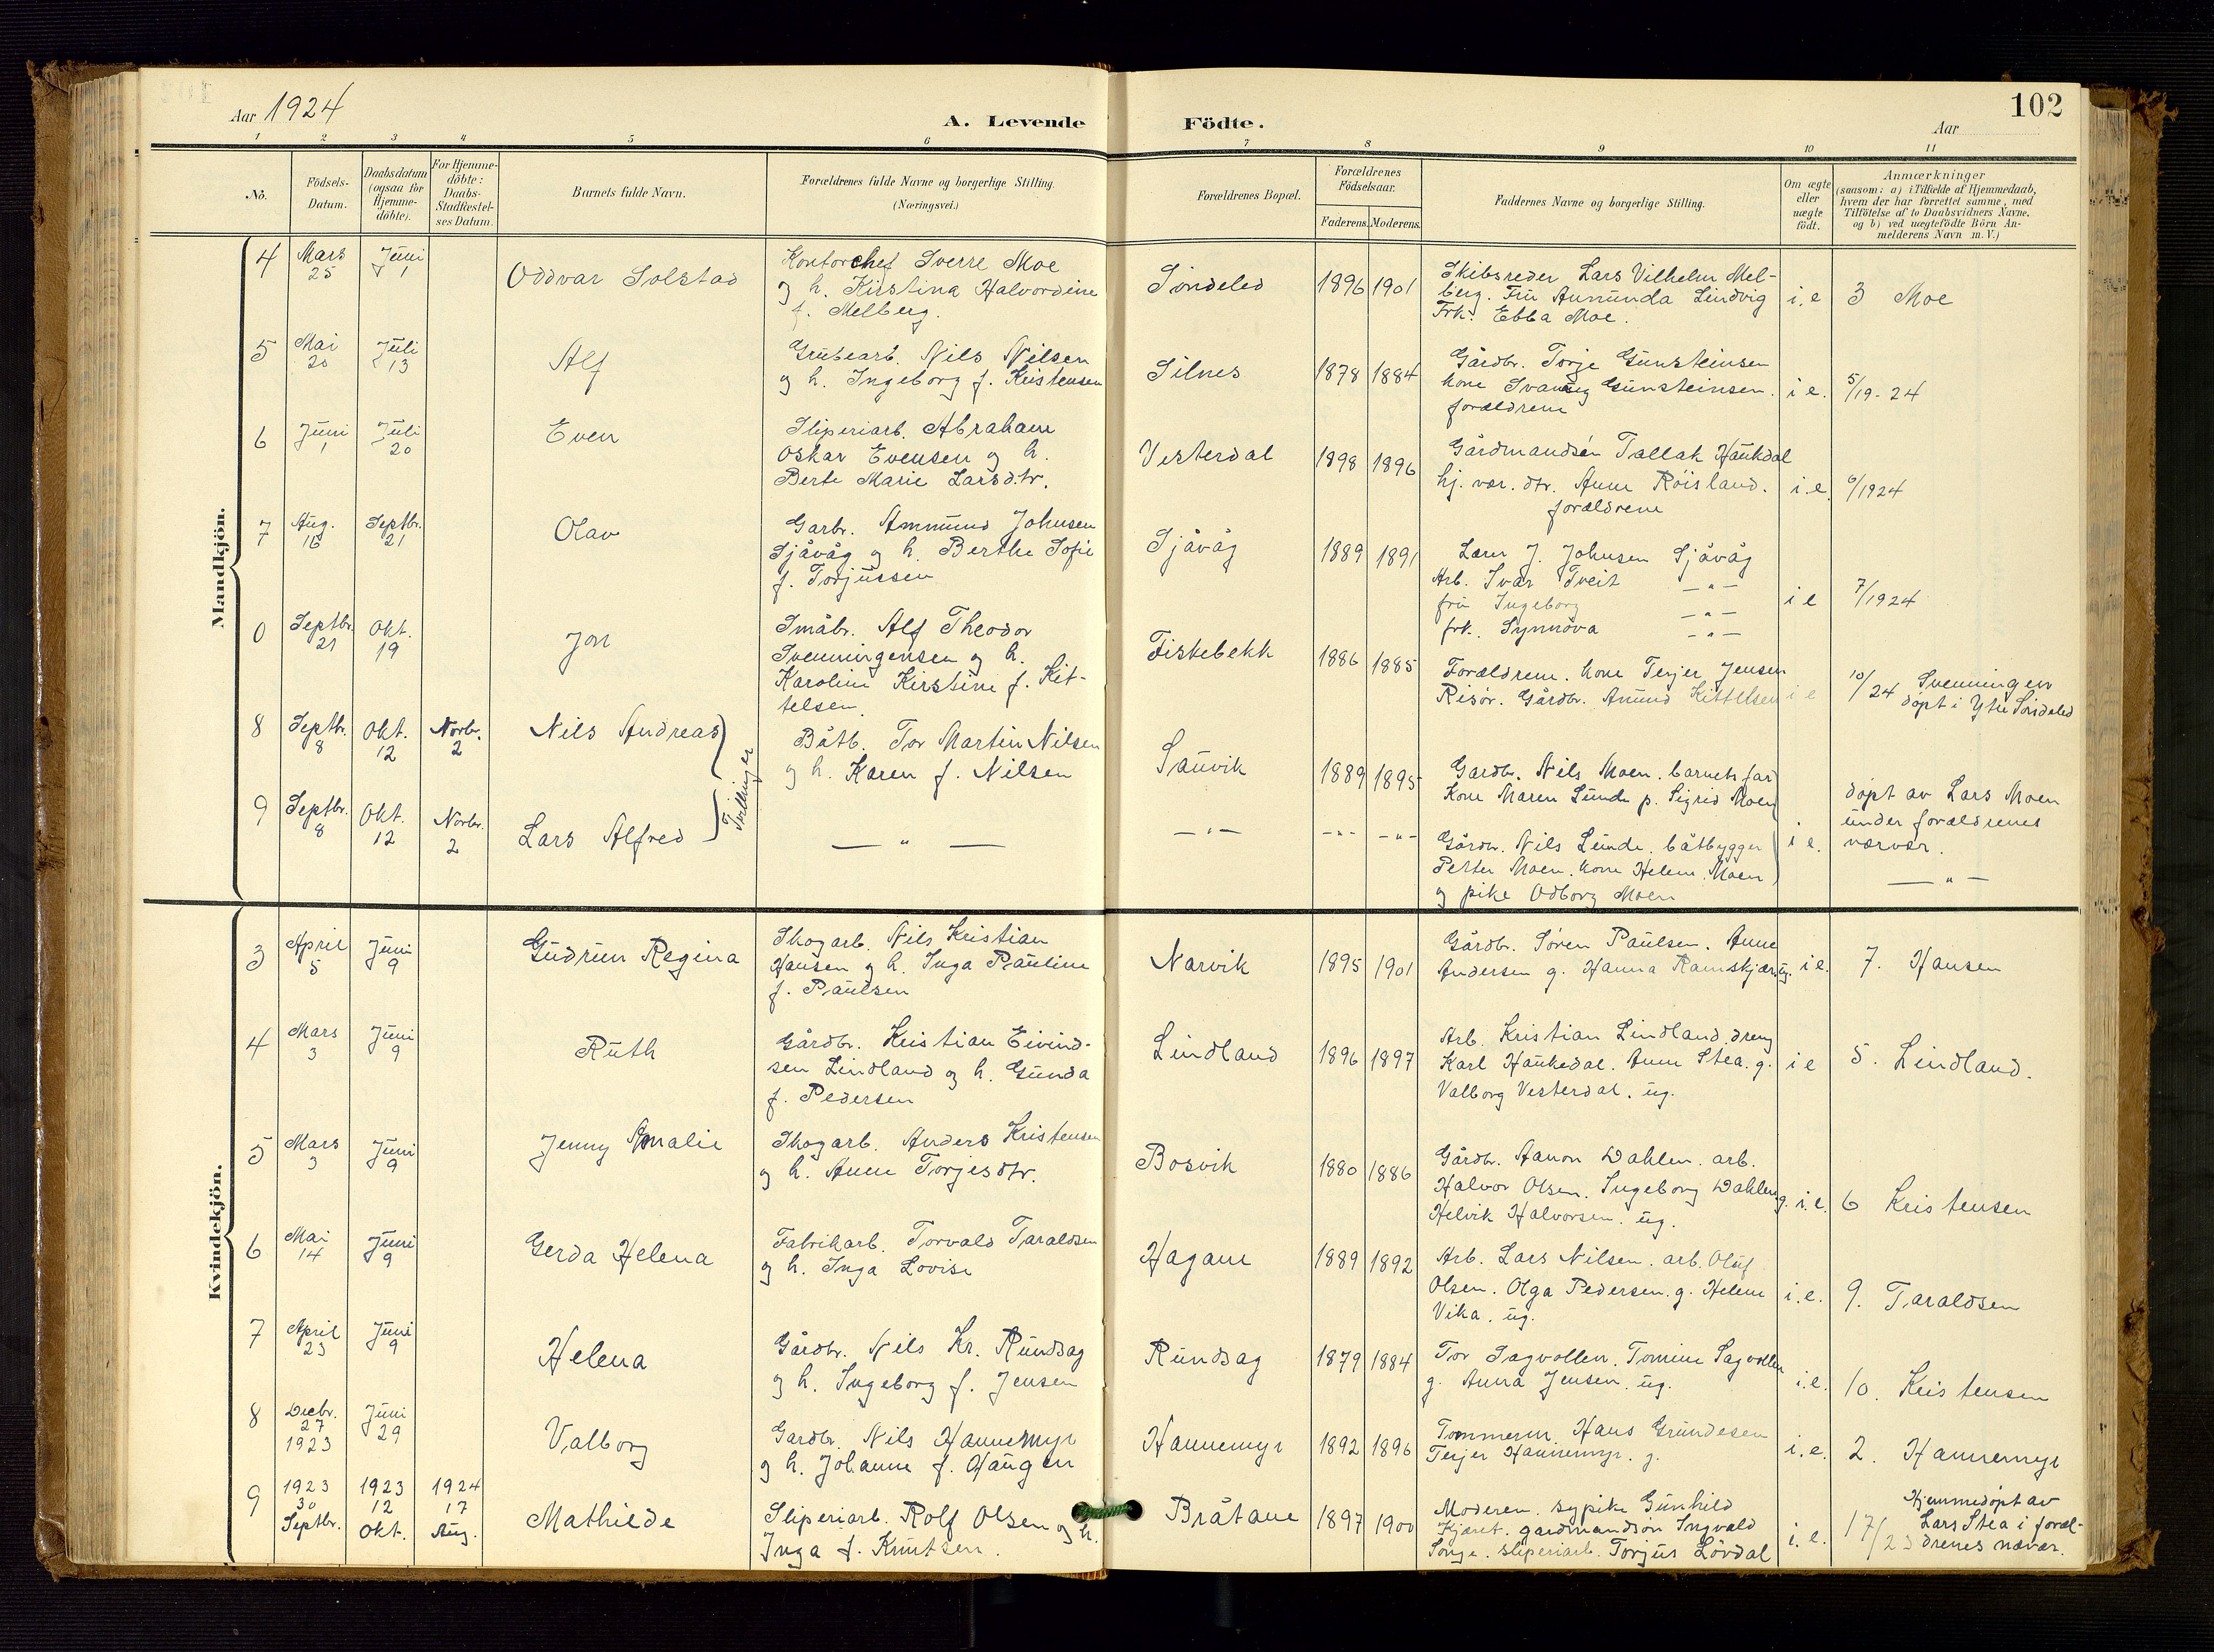 Aar 1924
A. Levende Födte.
Aar
102
1 2 3 4 5 6 7 8 9 10 11
No.
Födsels-
Datum.
Daabsdatum
(ogsaa for
Hjemme-
döbte).
For Hjemme-
döbte:
Daabs-
Stadfæstel-
ses Datum.
Barnets fulde Navn.
Forældrenes fulde Navne og borgerlige Stilling.
(Næringsvei.)
Forældrenes Bopæl.
Forældrenes
Födselsaar.
Faderens. Moderens.
Faddernes Navne og borgerlige Stilling.
Om ægte
eller
uægte
födt.
Anmærkninger
(saasom: a) i Tilfælde af Hjemmedaab,
hvem der har forrettet samme, med
Tilföielse af to Daabsvidners Navne.
og b) ved uægtefödte Börn An-
melderens Navn m. V.)
Mandkjön.
4
Mars
25
Juni
1
Oddvar Solstad
Kontorchef Sverre Moe
og h. Kirstina Halvordine
f. Melberg.
Söndeled
1896 1901
Skibsreder Lars Vilhelm Mel-
berg. Fru Anmunda Lindvig
Frk. Ebba Moe.
i.e
3 Moe
5
Mai
20
Juli
13
Alf
Grubearb. Nils Nilsen
og h. Ingeborg f. Kristensen
Silnes
1878 1884
Gårdbr. Torje Gunsteinsen
kone Svanaug Gunsteinsen.
forældrene
i e.
5/19-24
6
Juni
1
Juli
20
Even
Sliperiarb. Abraham
Oskar Evensen og h.
Berte Marie Larsdtr.
Vesterdal
1898 1896
Gårdmandsön Tallak Haukdal
hj. vær. dtr. Anne Röisland.
forældrene
i.e.
6/1924
7
Aug.
16
Septbr.
21
Olav
Garbr. Ammund Johnsen
Sjåvåg og h. Berthe Sofie
f. Torjussen
Sjåvåg
1889 1891
Lærer J. Johnsen Sjåvåg
Arb. Ivar Tveit — " —
fru Ingeborg — " —
frk. Synnöva — " —
i e
7/1924
0
Septbr.
21
Okt.
19
Jon
Småbr. Alf Theodor
Svenningensen og h.
Karoline Kirstine f. Kit-
telsen
Fiskebekk
1886 1885
Forældrene. kone Terjer Jensen
Risör. Gårdbr. Anund Kittelsen
i e
10/24 Svenningen
döpt i Ytre Söndeled
8
Septbr.
8
Okt.
12
Novbr.
2
Nils Andreas
Båtb. Tor Martin Nilsen
og h. Karen f. Nilsen
Sauvik
1889 1895
Gardbr. Nils Moen. barnets far
Kone Maren Lunde p. Sigrid Moen
döpt av Lars Moen
under forældrenes
nærvær.
Tvillinger
9
Septbr.
8
Okt.
12
Novbr.
2
Lars Alfred
— " —
— " —
-"- -"-
Gårdbr. Nils Lunde. båtbygger
Petter Moen. kone Helene Moen
og pike Odborg Moen
i e.
— " —
Kvindekjön.
3
April
5
Juni
9
Gudrun Regina
Skogarb. Nils Kristian
Hansen og h. Inga Pauline
f. Paulsen
Narvik
1895 1901
Gårdbr. Sören Paulsen. Anne
Andersen g. Hanna Ramskjær ug.
i e.
7. Hansen
4
Mars
3
Juni
9
Ruth
Gårdbr. Kristian Eivind-
sen Lindland og h. Gunda
f. Pedersen
Lindland
1896 1897
Arb. Kristian Lindland. dreng
Karl Haukedal. Anne Stea. g.
Valborg Vesterdal. ug.
i e
5. Lindland.
5
Mars
3
Juni
9
Jenny Amalie
Skogarb. Anders Kristensen
og h. Anne Torjesdtr.
Bosvik
1880 1886
Gårdbr. Aanon Dahlen. arb.
Halvor Olsen. Ingeborg Dahlen g.
Helvik Halvorsen. ug.
i.e.
6 Kristensen
6
Mai
14
Juni
9
Gerda Helena
Fabrikarb. Torvald Taraldsen
og h. Inga Lovise
Hagane
1889 1892
Arb. Lars Nilsen. arb. Oluf
Olsen. Olga Pedersen. g. Helene
Vika. ug.
i.e.
9. Taraldsen
7
April
23
Juni
9
Helena
Gårdbr. Nils Kr. Rundsag
og h. Ingeborg f. Jensen
Rundsag
1879 1884
Tor Sagvollen. Tomine Sagvollen
g. Anna Jensen. ug.
i.e.
10. Kristensen
8
Decbr.
27
1923
Juni
29
Valborg
Gardbr. Nils Hannemyr
og h. Johanne f. Haugen
Hannemyr
1892 1896
Tömmerm. Hans Grundesen
Terjer Hannemyr. g.
i.e.
2. Hannemyr
9
1923
30
Septbr.
1923
12
Okt.
1924
17
Aug.
Mathilde
Sliperiarb. Rolf Olsen og h.
Inga f. Knutsen.
Bråtane
1897 1900
Moderen. sypike Gunhild
Kjæret. gardmandsön Ingvald
Songe. sliperiarb. Torjus Lövdal
i. e.
17/23
Hjemmedöpt av
Lars Stea i foræl-
drenes nærvær.